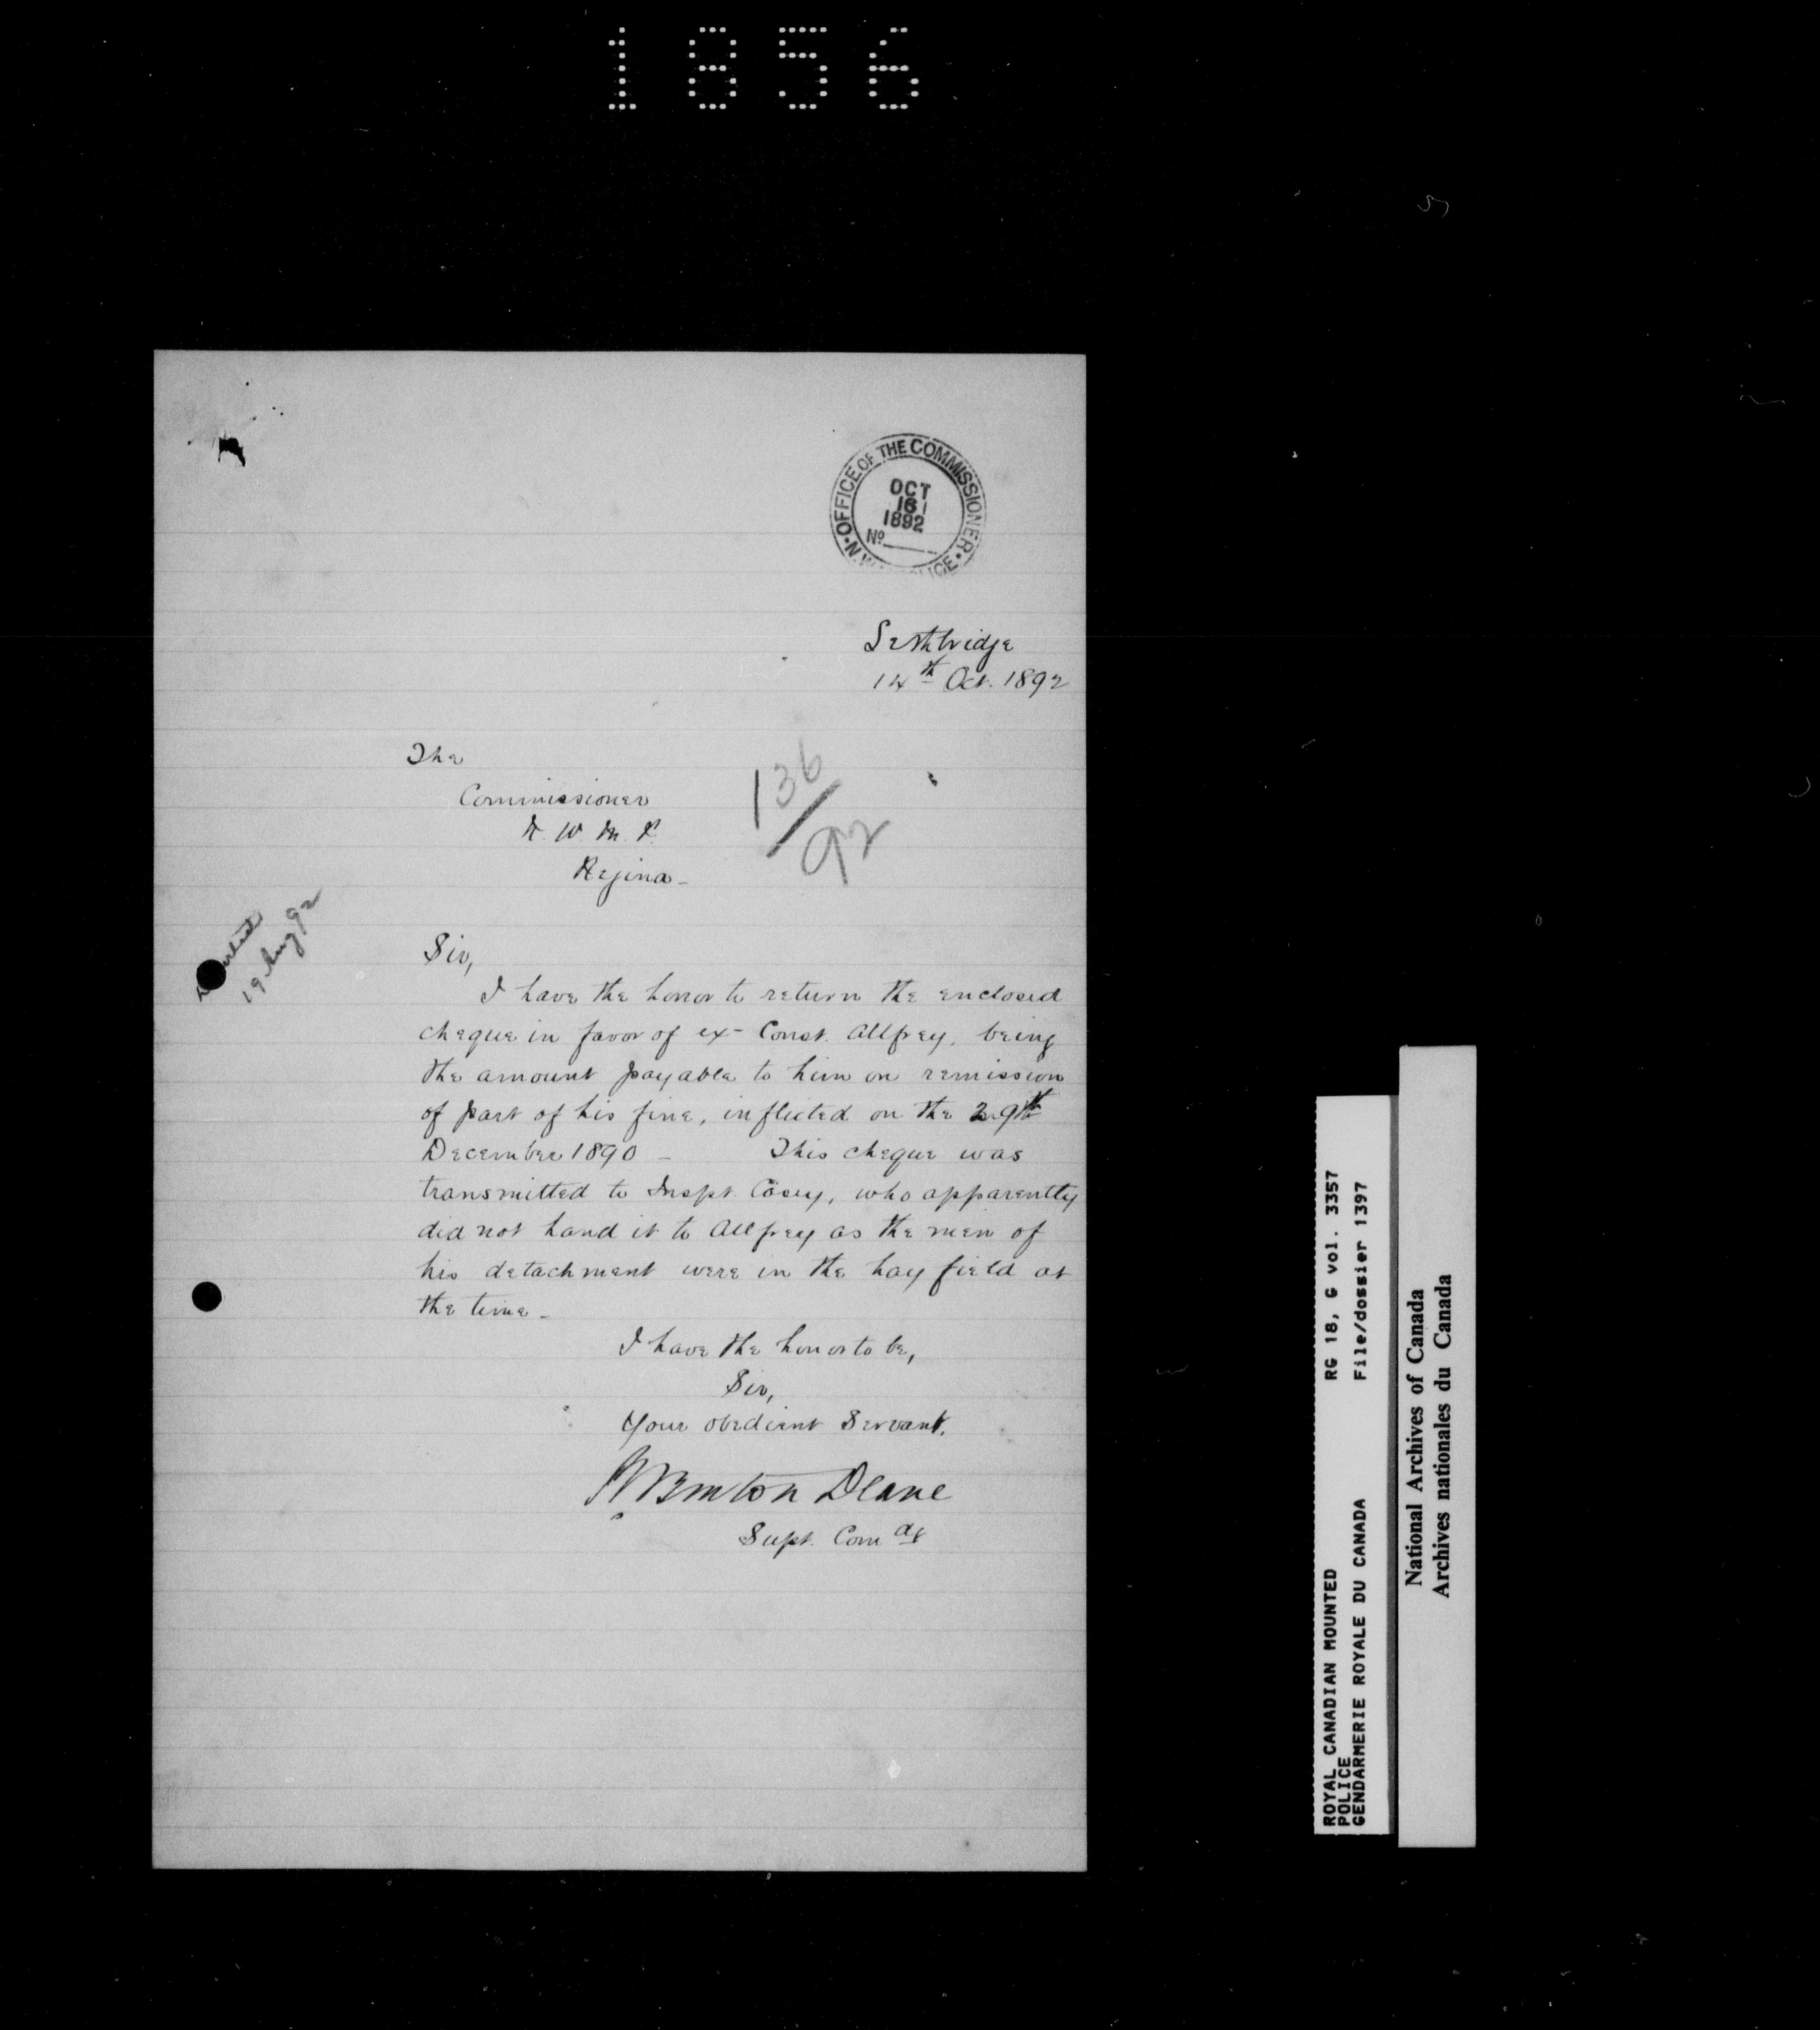 1856
OFFICE OF THE COMMISSIONER
OCT
1892
No
Lethbridge
14th Oct. 1892
The
Commissioner
N. W. M. P.
Regina -
136/92
19 Aug 92
Sir,
I have the honor to return the enclosed
cheque in favor of ex-Const. Allfrey, being
the amount payable to him on remission
of part of his fine, inflicted on the 29th
December 1890 - This cheque was
transmitted to Inspr. Casey, who apparently
did not hand it to Allfrey as the men of
his detachment were in the hay field at
the time -
I have the honor to be,
Sir,
Your obedient Servant,
Burton Deane
Supt. Comdg
ROYAL CANADIAN MOUNTED
POLICE
GENDARMERIE ROYALE DU CANADA
RG 18, G vol. 3357
File/dossier 1397
National Archives of Canada
Archives nationales du Canada